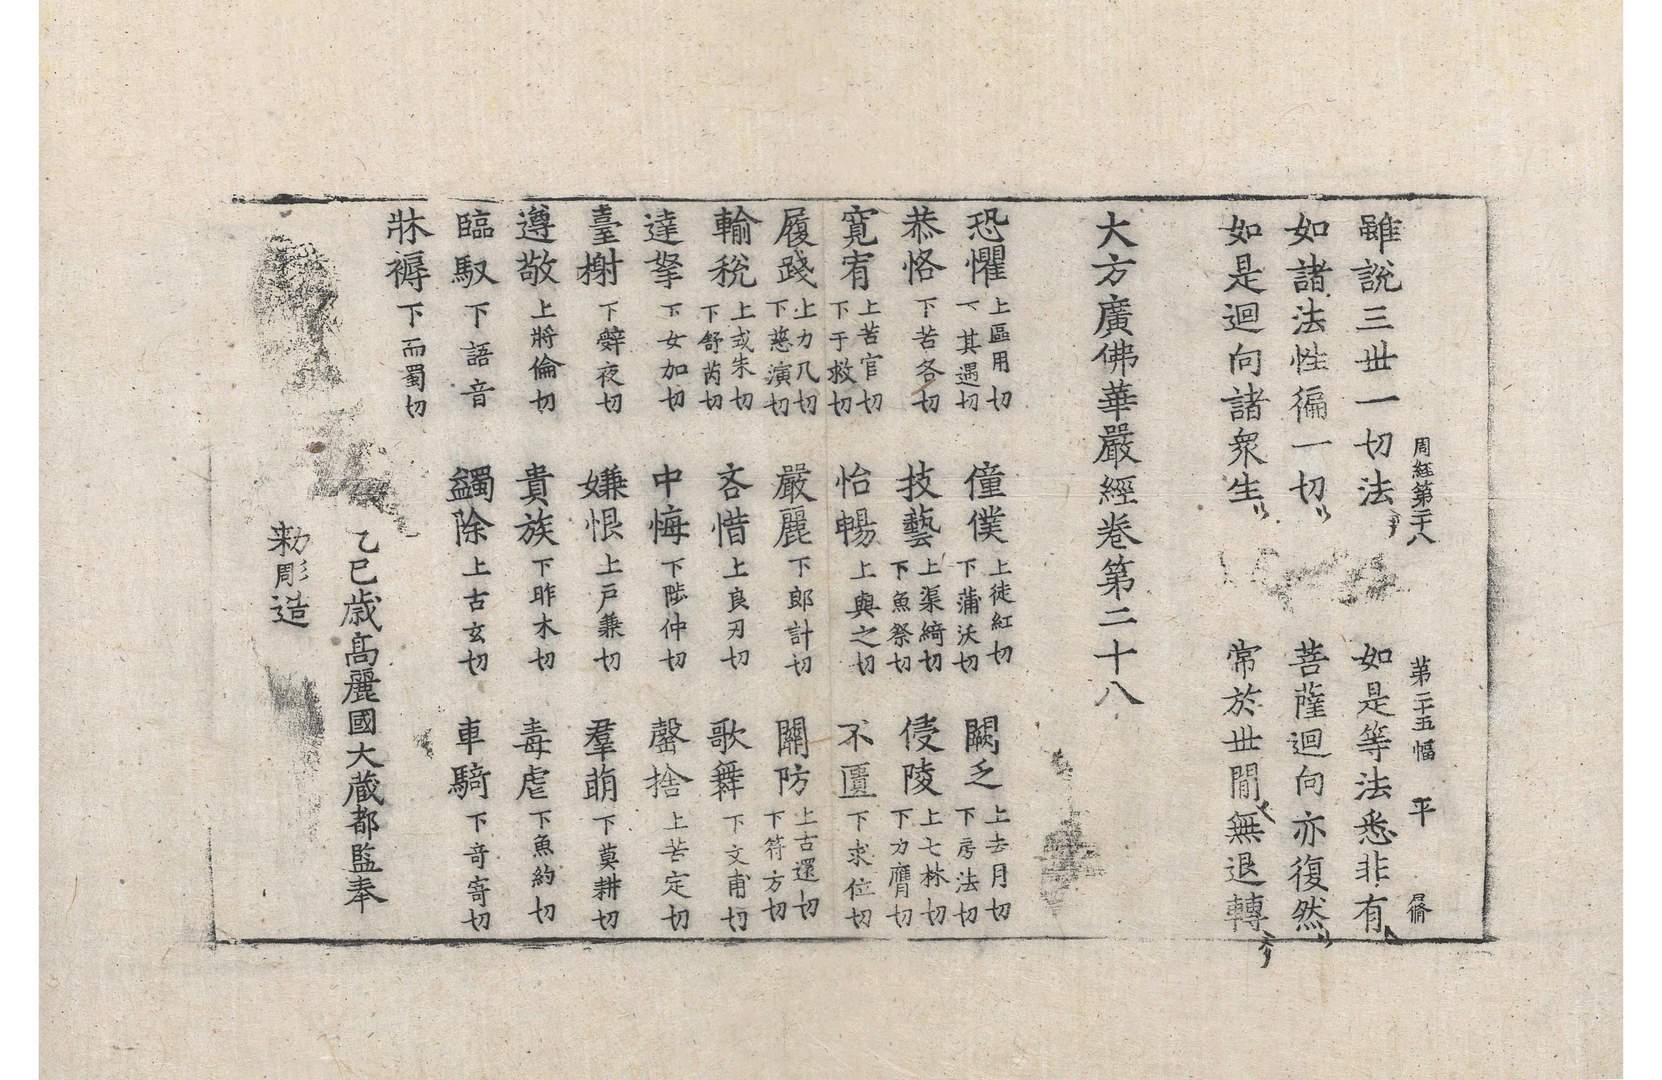 周經第二十八　第二十五幅　平
雖說三世一切法　如是等法悉非有
如諸法性徧一切　菩薩迴向亦復然
如是迴向諸衆生　常於世閒無退轉
大方廣佛華嚴經卷第二十八
恐懼上區用切下其遇切　僮僕上徒紅切下蒲沃切　闕乏上去月切下房法切
恭恪下苦各切　技藝上渠綺切下魚祭切　侵陵上七林切下力膺切
寬宥上苦官切下于救切　怡暢上與之切　不匱下求位切
履踐上力几切下慈演切　嚴麗下郎計切　關防上古還切下符方切
輸稅上式朱切下舒芮切　吝惜上良刃切　歌舞下文甫切
達拏下女加切　中悔下陟仲切　罄捨上苦定切
臺榭下辭夜切　嫌恨上戸兼切　羣萌下莫耕切
遵敬上將倫切　貴族下昨木切　毒虐下魚約切
臨馭下語音　蠲除上古玄切　車騎下奇寄切
牀褥下而蜀切
乙巳歲高麗國大藏都監奉
勑彫造